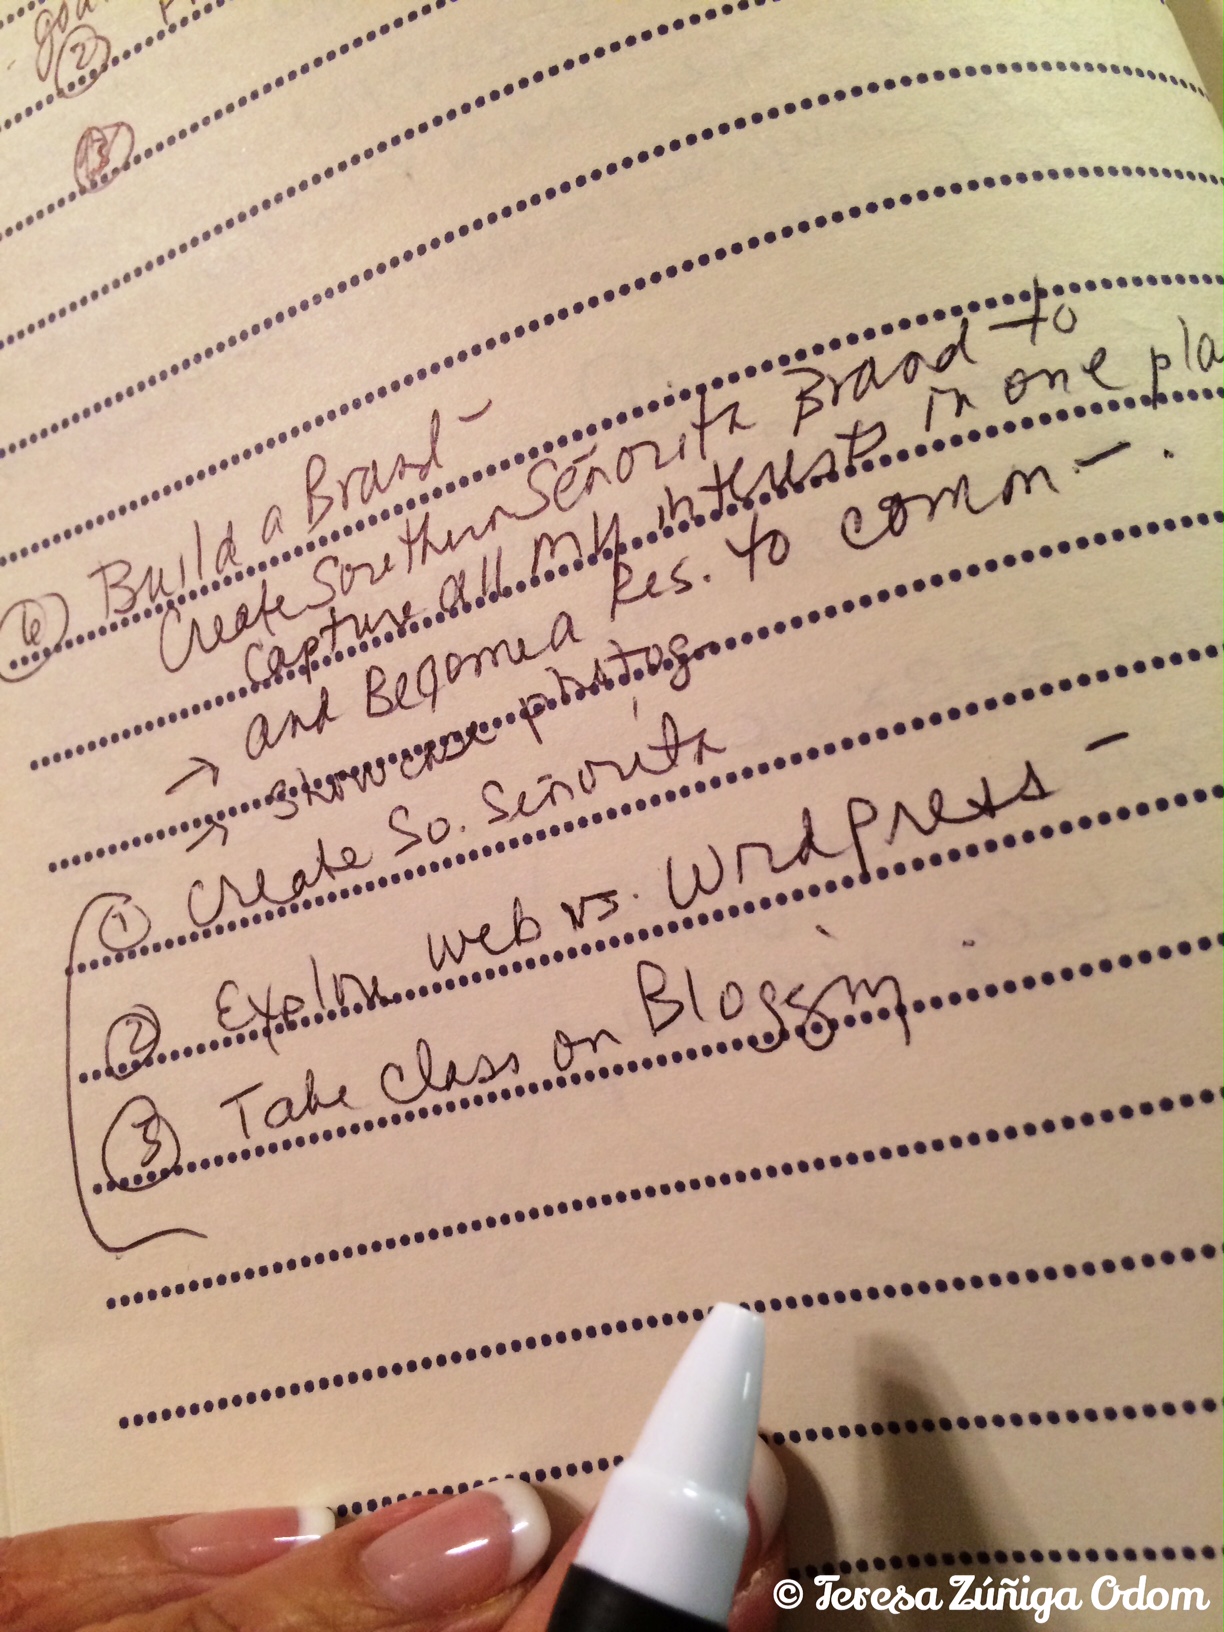 ②
③
⑥ Build a Brand -
Create Southern Señorita Brand to
capture all my interests in one pla
→ and Become a Res. to common - .
→ showcase photog
① Create So. Señorita
② Explore web vs. Wordpress -
③ Take Class on Blogging
© Teresa Zúñiga Odom